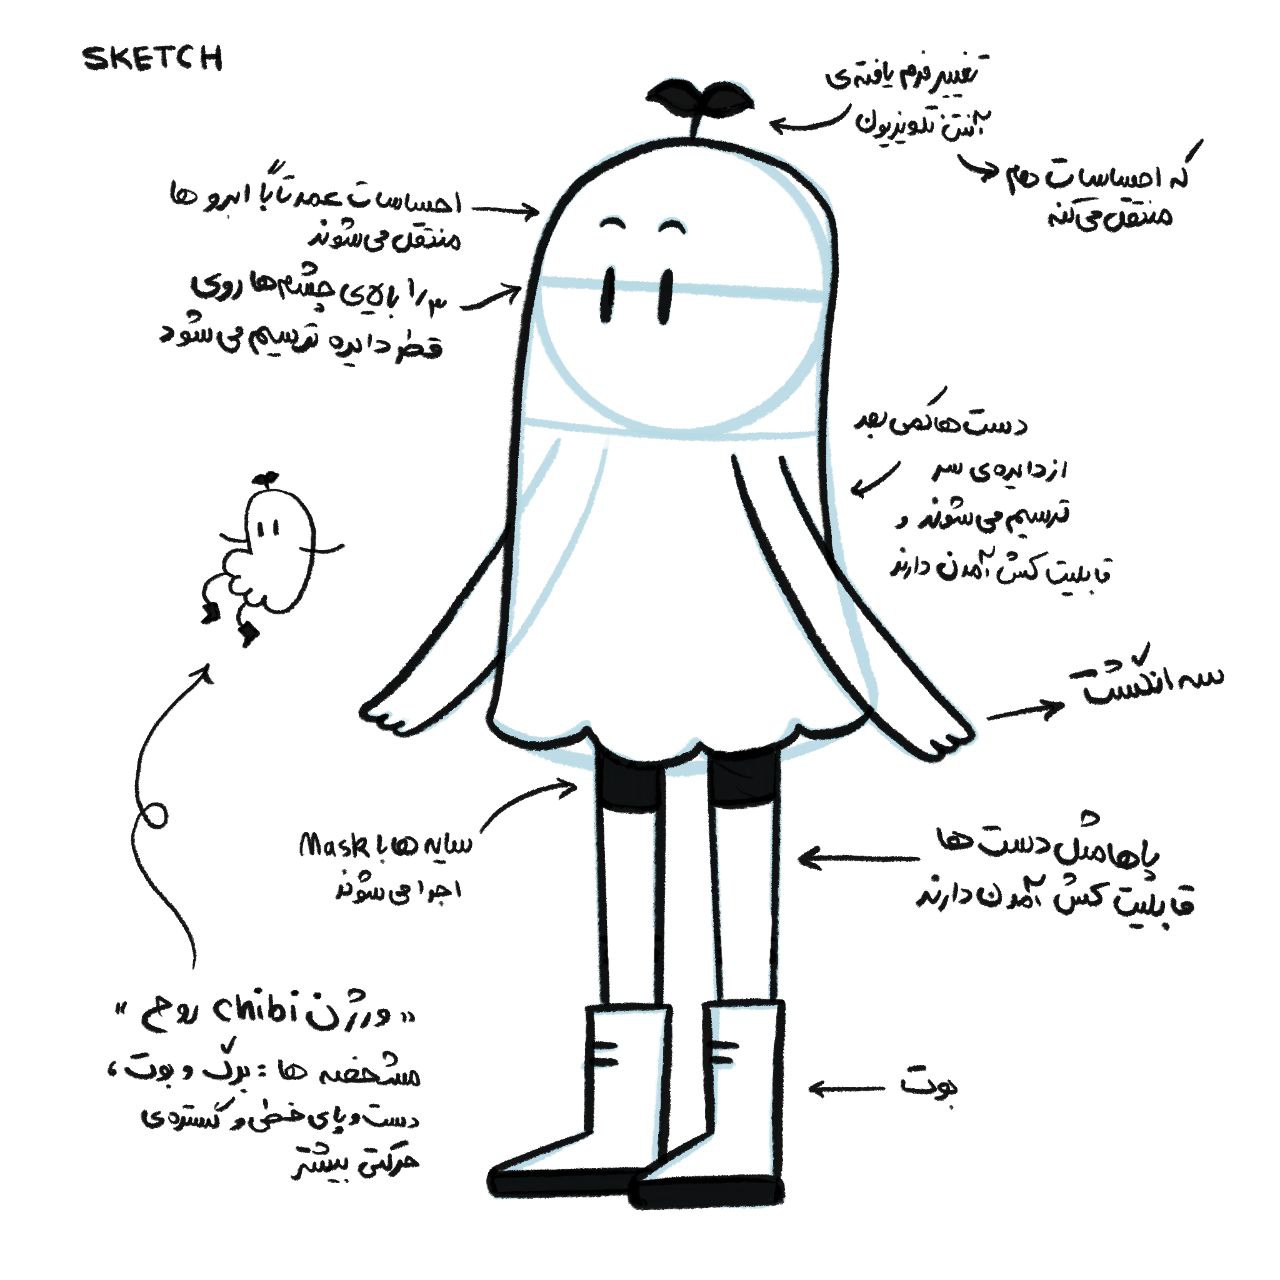 SKETCH
تغییر فرم یافته‌ی
آنتن تلویزیون
که احساسات هم
منتقل می‌کنه
احساسات عمدتاً با ابرو ها
منتقل می‌شوند
۱/۳ بالای چشم‌ها روی
قطر دایره ترسیم می‌شود
دست ها کمی بعد
از دایره‌ی سر
ترسیم می‌شوند و
قابلیت کش آمدن دارند
سه انگشت
سایه ها با Mask
اجرا می‌شوند
پاها مثل دست ها
قابلیت کش آمدن دارند
« ورژن chibi روح »
مشخصه ها : برگ و بوت ،
دست و پای خطی و گستره‌ی
حرکتی بیشتر
بوت